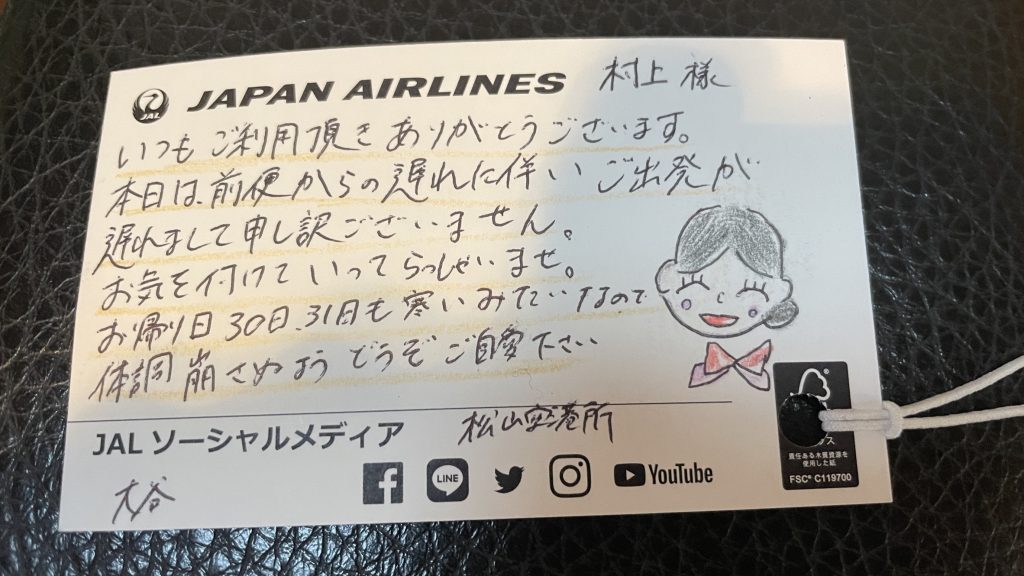 JAL
JAPAN AIRLINES
村上 様
いつもご利用頂きありがとうございます。
本日は前便からの遅れに伴いご出発が
遅れまして申し訳ございません。
お気を付けていってらっしゃいませ。
お帰り日30日、31日も寒いみたいなので
体調崩さぬようどうぞご自愛下さい
松山空港所
JAL ソーシャルメディア
LINE
YouTube
大谷
責任ある木質資源を
使用した紙
FSC® C119700